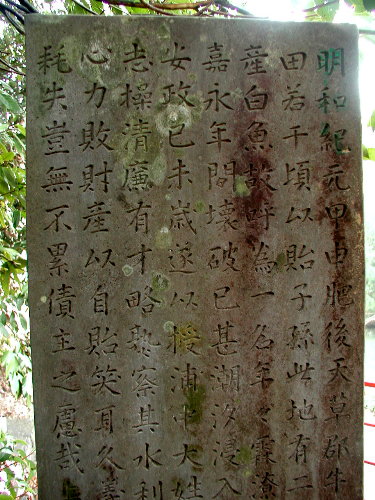 明和紀元甲申肥後天草郡牛
田若干頃以貽子孫此地有二
産白魚故呼為一名年々霖潦
嘉永年間壊破已甚潮汐浸入
安政己未歳遂以授浦中大姓
志操清廉有才略熟察其水利
心力敗財産以自貽笑耳久
耗失豈無不累債主之慮哉